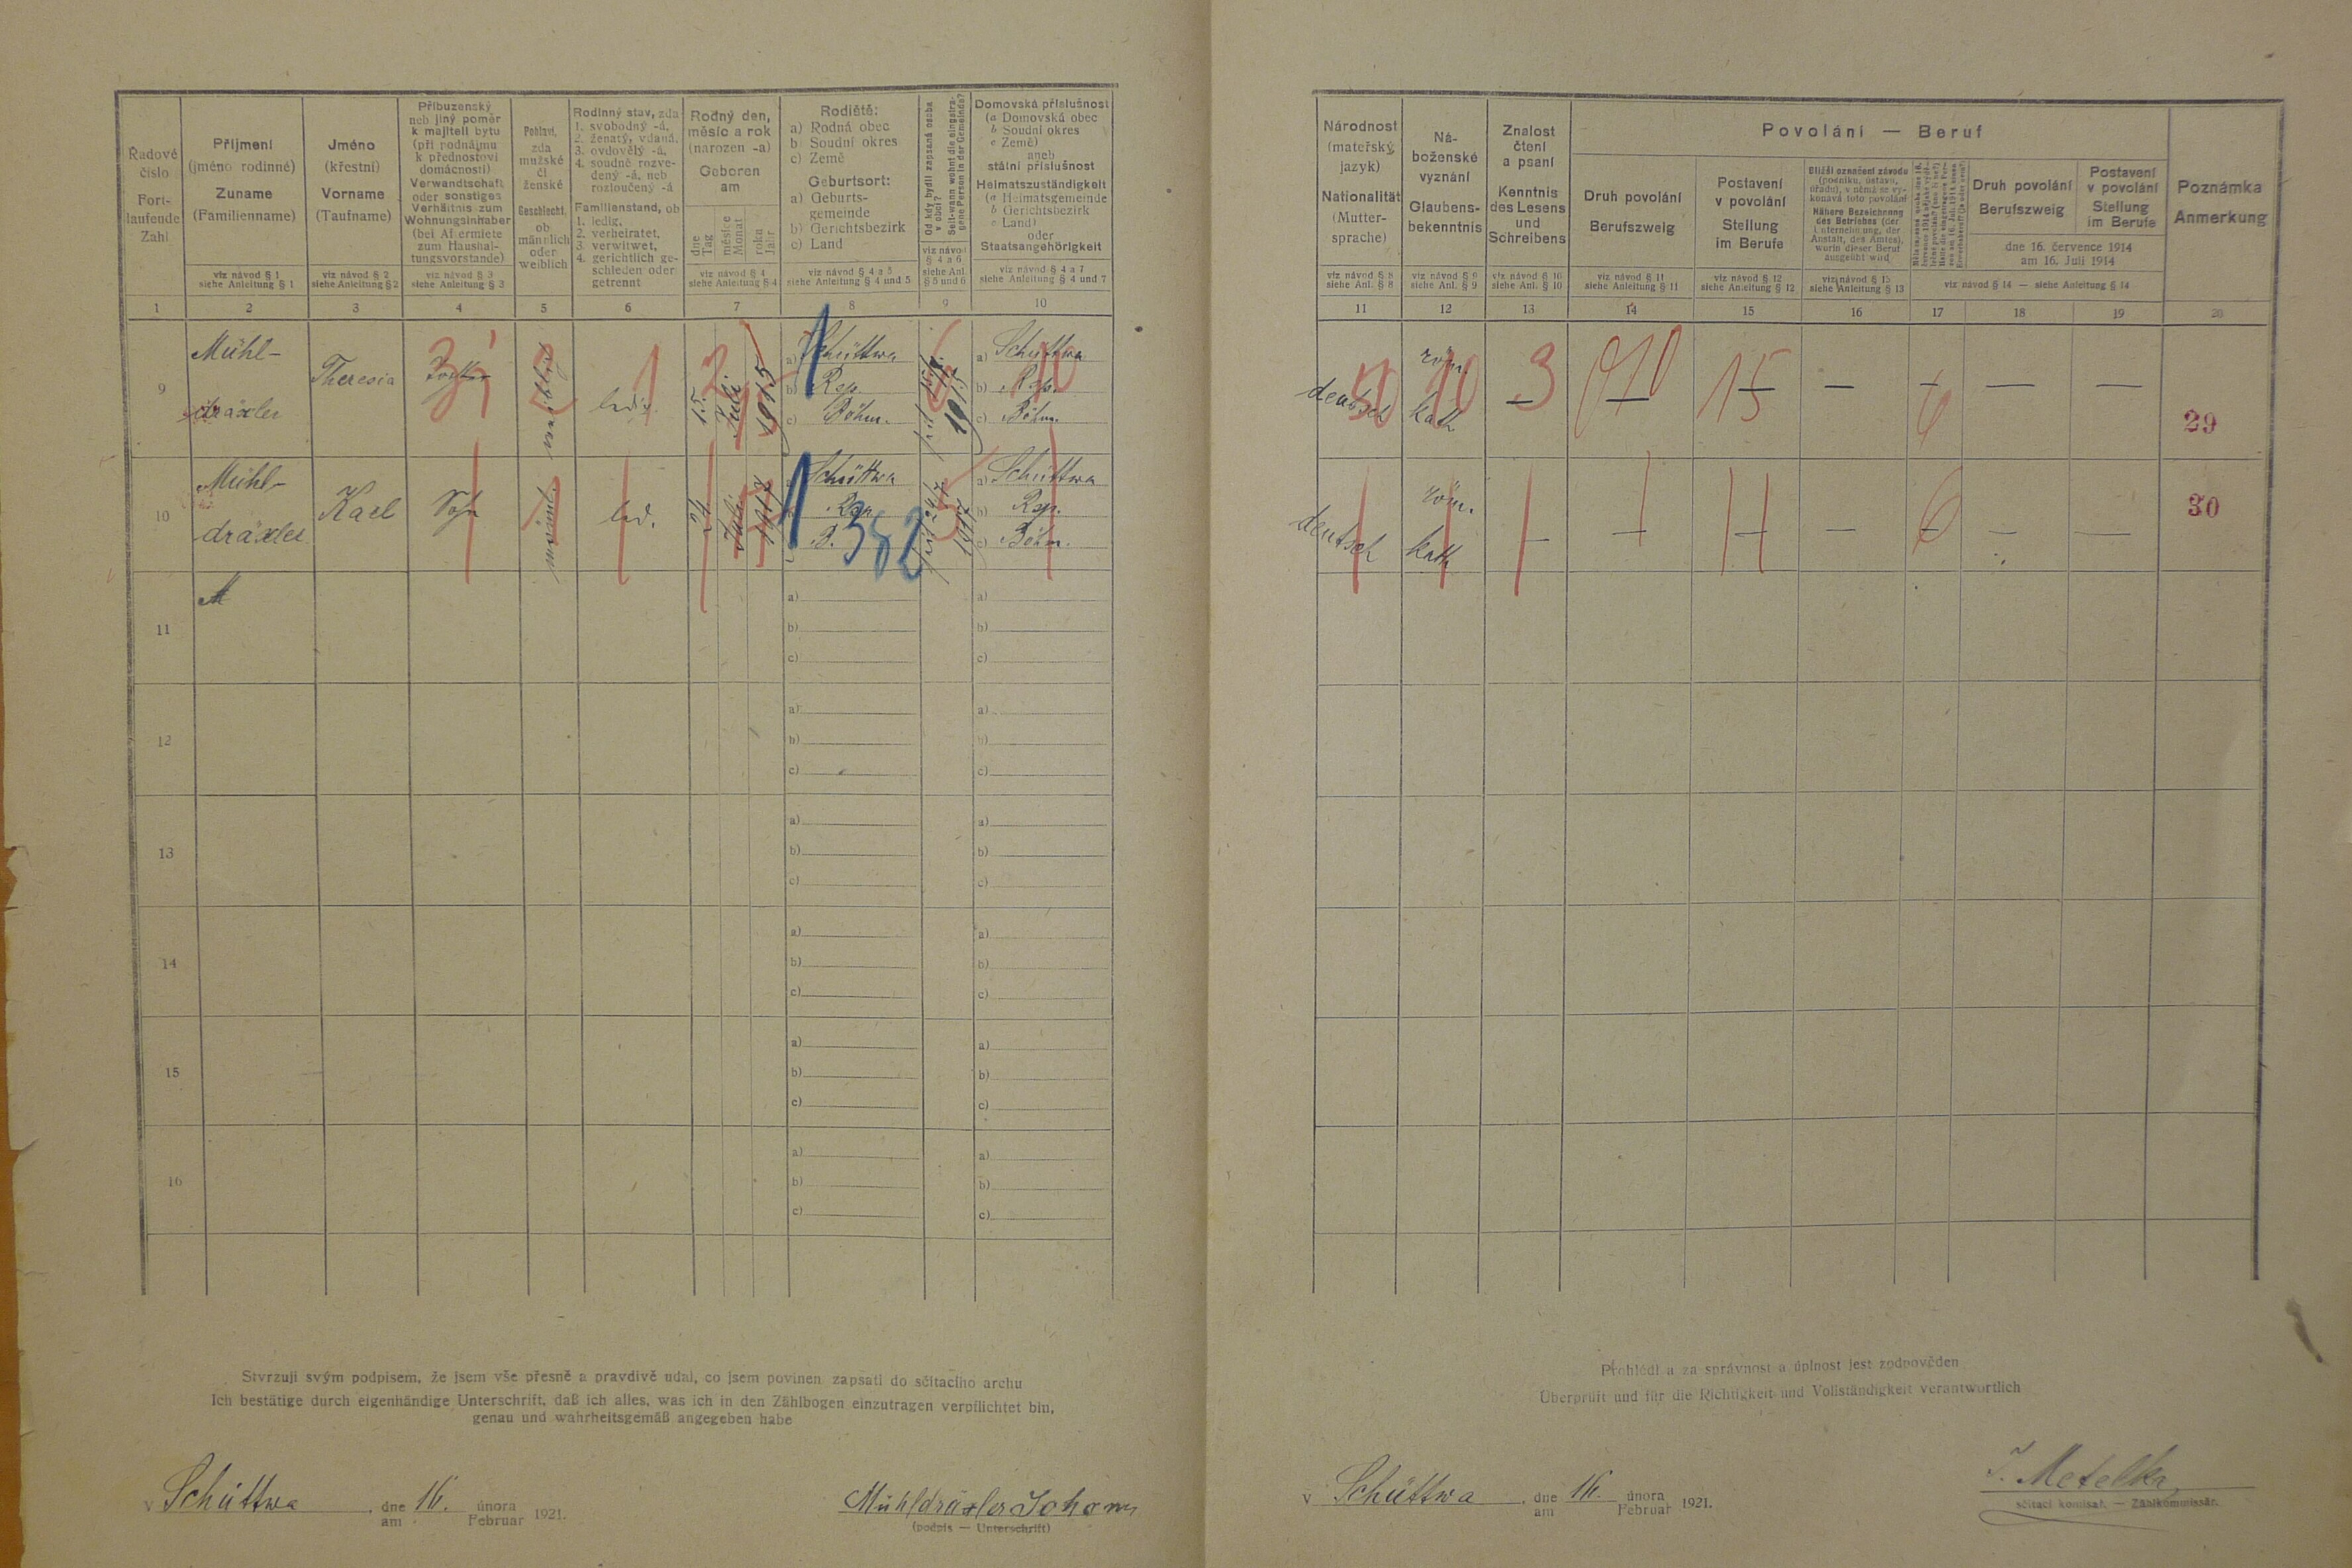 Řadové číslo
Fortlaufende Zahl
1
Příjmení
(jméno rodinné)
Zuname
(Familienname)
viz návod § 1
siehe Anleitung § 1
2
Jméno
(křestní)
Vorname
(Taufname)
viz návod § 2
siehe Anleitung § 2
3
Příbuzenský
neb jiný poměr
k majiteli bytu
(při podnájmu
k přednostovi
domácnosti)
Verwandtschaft
oder sonstiges
Verhältnis zum
Wohnungsinhaber
(bei Aftermiete
zum Haushal-
tungsvorstande)
viz návod § 3
siehe Anleitung § 3
4
Pohlaví,
zda
mužské
či
ženské
Geschlecht,
ob
männlich
oder
weiblich
5
Rodinný stav, zda
1. svobodný -á,
2. ženatý, vdaná,
3. ovdovělý -á,
4. soudně rozve-
dený -á, neb
rozloučený -á
Familienstand, ob
1. ledig,
2. verheiratet,
3. verwitwet,
4. gerichtlich ge-
schieden oder
getrennt
6
Rodný den,
měsíc a rok
(narozen -a)
Geboren
am
dne
Tag
měsíce
Monat
roku
Jahr
viz návod § 4
siehe Anleitung § 4
7
Rodiště:
a) Rodná obec
b) Soudní okres
c) Země
Geburtsort:
a) Geburts-
gemeinde
b) Gerichtsbezirk
c) Land
viz návod § 4 a 5
siehe Anleitung § 4 und 5
8
Od kdy bydlí zapsaná osoba
v obci?
Seit wann wohnt die eingetra-
gene Person in der Gemeinde?
viz návod
§ 4 a 6
siehe Anl.
§ 5 und 6
9
Domovská příslušnost
(a Domovská obec
b Soudní okres
c Země)
aneb
státní příslušnost
Heimatszuständigkeit
(a Heimatsgemeinde
b Gerichtsbezirk
c Land)
oder
Staatsangehörigkeit
viz návod § 4 a 7
siehe Anleitung § 4 und 7
10
Národnost
(mateřský
jazyk)
Nationalität
(Mutter-
sprache)
viz návod § 8
siehe Anl. § 8
11
Ná-
boženské
vyznání
Glaubens-
bekenntnis
viz návod § 9
siehe Anl. § 9
12
Znalost
čtení
a psaní
Kenntnis
des Lesens
und
Schreibens
viz návod § 10
siehe Anl. § 10
13
Povolání — Beruf
Druh povolání
Berufszweig
viz návod § 11
siehe Anleitung § 11
14
Postavení
v povolání
Stellung
im Berufe
viz návod § 12
siehe Anleitung § 12
15
Bližší označení závodu
(podniku, ústavu,
úřadu), v němž se vy-
konává toto povolání
Nähere Bezeichnung
des Betriebes (der
Unternehmung, der
Anstalt, des Amtes),
worin dieser Beruf
ausgeübt wird
viz návod § 13
siehe Anleitung § 13
16
17
Druh povolání
Berufszweig
18
Postavení
v povolání
Stellung
im Berufe
dne 16. července 1914
am 16. Juli 1914
viz návod § 14 — siehe Anleitung § 14
19
Poznámka
Anmerkung
20
9
Mühl-
dräxler
Theresia
weiblich
ledig.
15.
Juli
1915
a) Schüttwa
b) Rsp.
c) Böhm.
a) Schüttwa
b) Rsp.
c) Böhm.
deutsch
röm.
kath.
3
15
29
10
Mühl-
dräxler
Karl
Sohn
männl.
led.
24
Juli
1917
Schüttwa
Rsp.
B.
382
a) Schüttwa
b) Rsp.
c) Böhm.
deutsch
röm.
kath.
6
30
11
M
a)
b)
c)
a)
b)
c)
12
a)
b)
c)
a)
b)
c)
13
a)
b)
c)
a)
b)
c)
14
a)
b)
c)
a)
b)
c)
15
a)
b)
c)
a)
b)
c)
16
a)
b)
c)
a)
b)
c)
Stvrzuji svým podpisem, že jsem vše přesně a pravdivě udal, co jsem povinen zapsati do sčítacího archu
Ich bestätige durch eigenhändige Unterschrift, daß ich alles, was ich in den Zählbogen einzutragen verpflichtet bin,
genau und wahrheitsgemäß angegeben habe
v Schüttwa, dne 16. února 1921.
am Februar
Mühldräxler Johann
(podpis — Unterschrift)
Prohlédl a za správnost a úplnost jest zodpověden
Überprüft und für die Richtigkeit und Vollständigkeit verantwortlich
v Schüttwa, dne 16. února 1921.
am Februar
J. Metelka
sčítací komisař. — Zählkommissär.